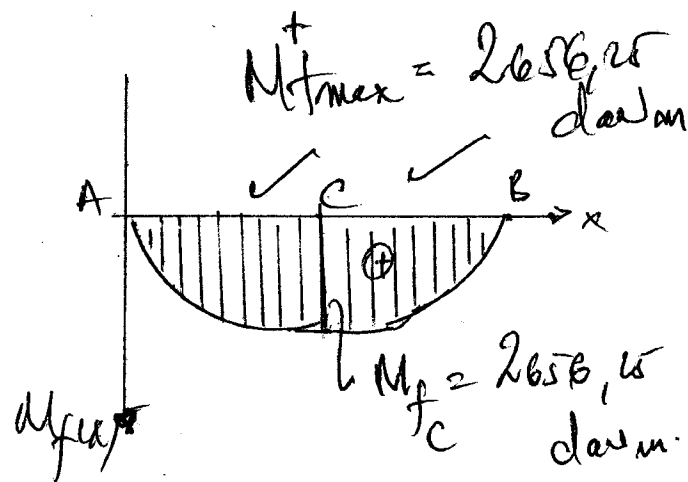 M+fmax = 2656,25
daN m
A
C
B
x
+
Mf(x)
MfC = 2656,25
daN m.